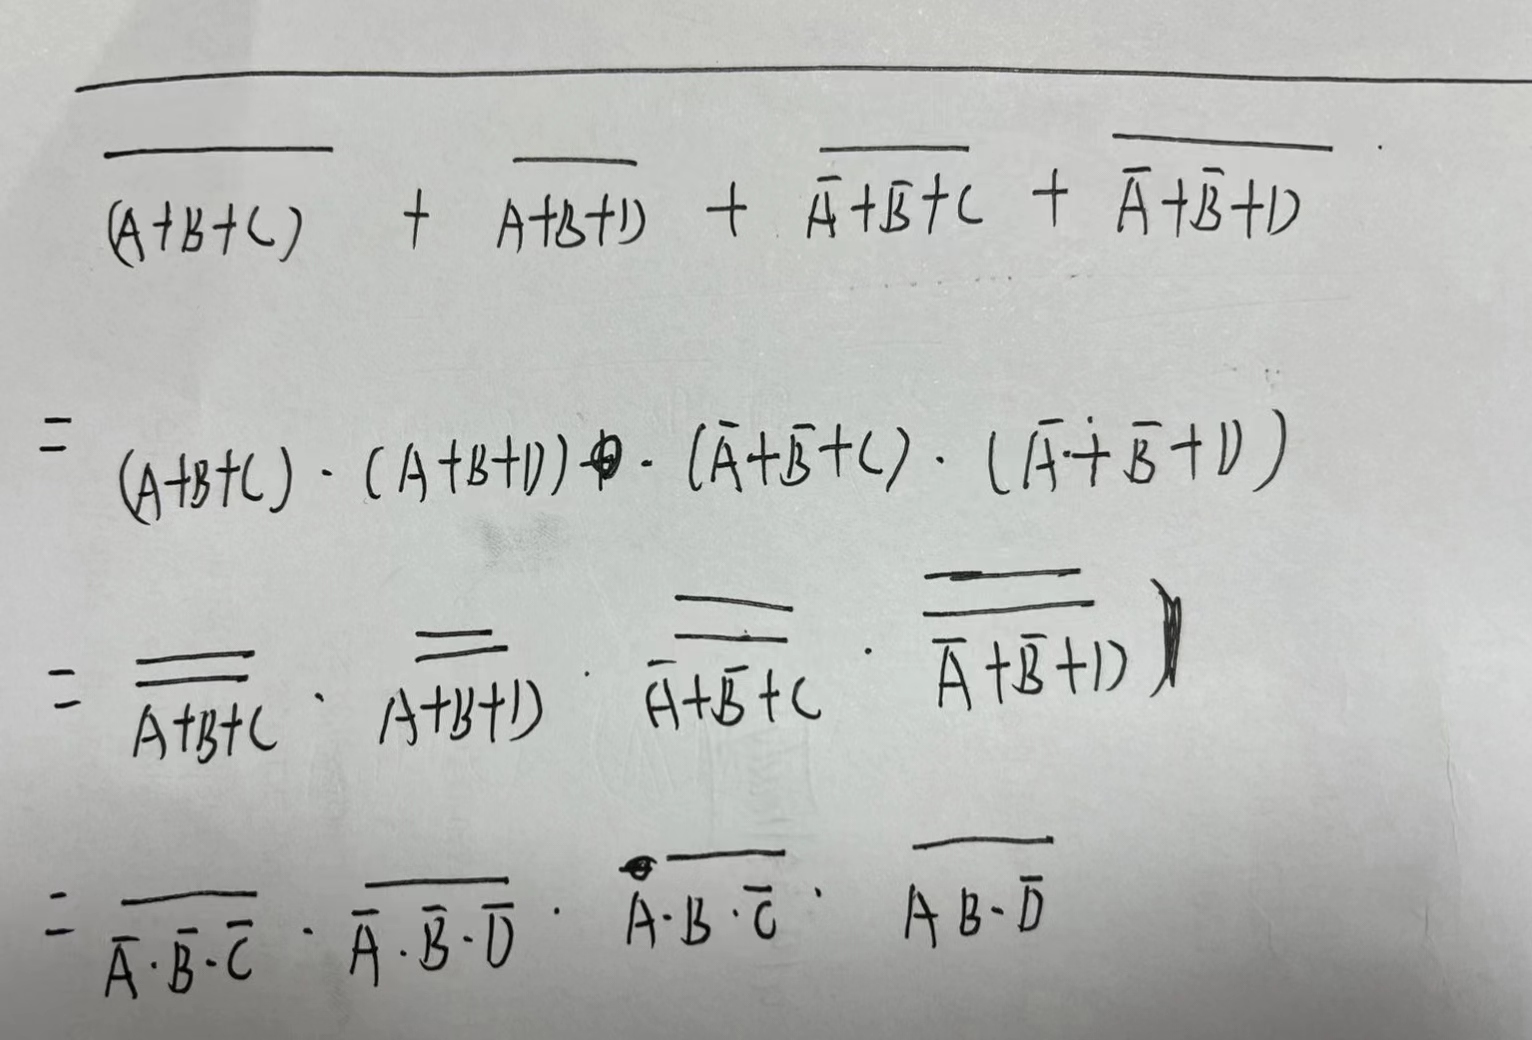 $\overline{\overline{(A+B+C)} + \overline{A+B+D} + \overline{\bar{A}+\bar{B}+C} + \overline{\bar{A}+\bar{B}+D}}$
$= (A+B+C) \cdot (A+B+D) \cdot (\bar{A}+\bar{B}+C) \cdot (\bar{A}+\bar{B}+D)$
$= \overline{\overline{A+B+C}} \cdot \overline{\overline{A+B+D}} \cdot \overline{\overline{\bar{A}+\bar{B}+C}} \cdot \overline{\overline{\bar{A}+\bar{B}+D}}$
$= \overline{\bar{A} \cdot \bar{B} \cdot \bar{C}} \cdot \overline{\bar{A} \cdot \bar{B} \cdot \bar{D}} \cdot \overline{A \cdot B \cdot \bar{C}} \cdot \overline{A B \cdot \bar{D}}$